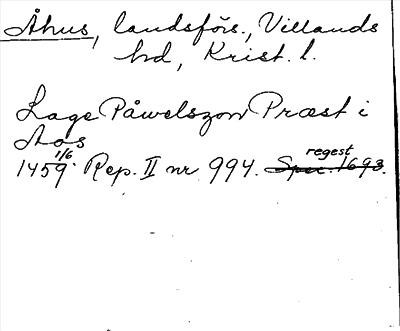 Åhus, landsförs., Villands
hd, Krist. l.
Lage Påwelszon Præst i
Aos
1459 1/6. Rep. II nr 994. Spec. 1698. regest